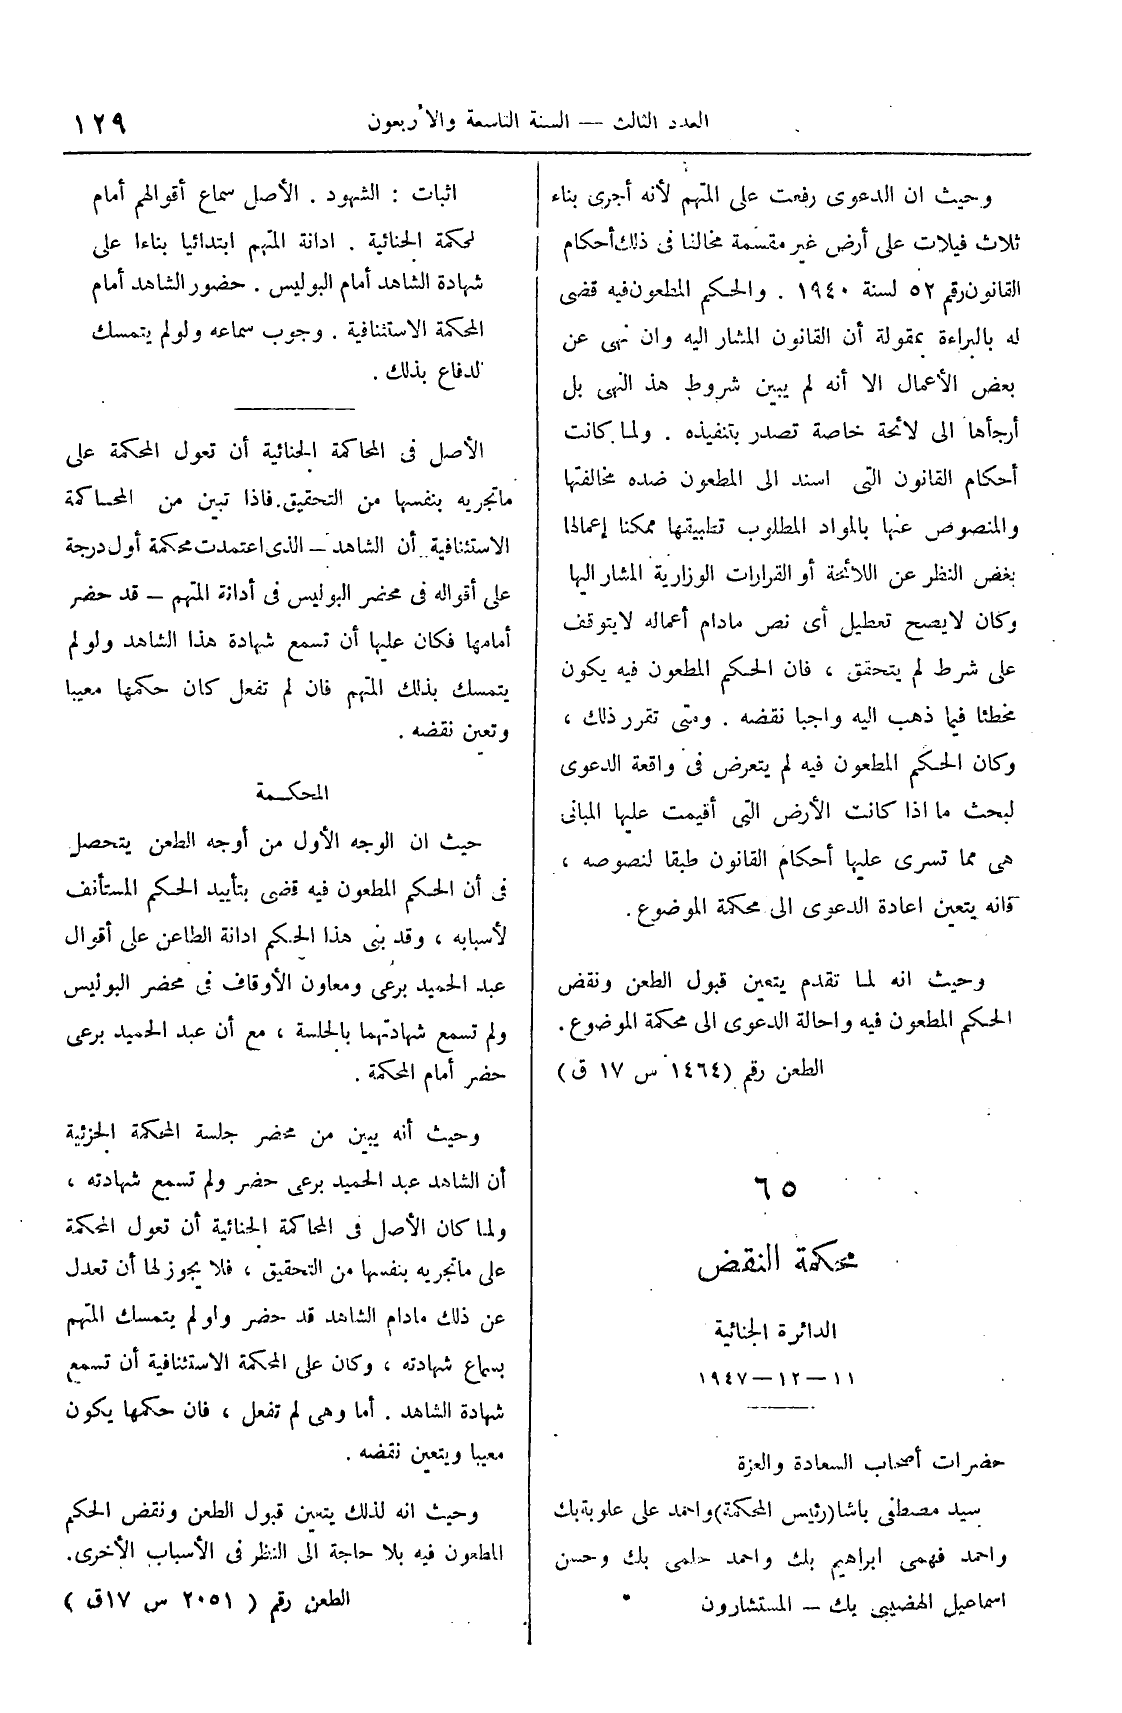 العدد الثالث — السنة التاسعة والأربعون
١٢٩
وحيث ان الدعوى رفعت على المتهم لأنه أجرى بناء
ثلاث فيلات على أرض غير مقسمة مخالفا فى ذلك أحكام
القانون رقم ٥٢ لسنة ١٩٤٠ . والحكم المطعون فيه قضى
له بالبراءة بمقولة أن القانون المشار اليه وان نهى عن
بعض الأعمال الا أنه لم يبين شروط هذ النهى بل
أرجأها الى لائحة خاصة تصدر بتنفيذه . ولما كانت
أحكام القانون التى اسند الى المطعون ضده مخالفتها
والمنصوص عنها بالمواد المطلوب تطبيقها ممكنا إعمالها
بغض النظر عن اللائحة أو القرارات الوزارية المشار اليها
وكان لايصح تعطيل أى نص مادام أعماله لايتوقف
على شرط لم يتحقق ، فان الحكم المطعون فيه يكون
مخطئا فيما ذهب اليه واجبا نقضه . ومتى تقرر ذلك ،
وكان الحكم المطعون فيه لم يتعرض فى واقعة الدعوى
لبحث ما اذا كانت الأرض التى أقيمت عليها المبانى
هى مما تسرى عليها أحكام القانون طبقا لنصوصه ،
فانه يتعين اعادة الدعوى الى محكمة الموضوع .
وحيث انه لما تقدم يتعين قبول الطعن ونقض
الحكم المطعون فيه واحالة الدعوى الى محكمة الموضوع .
الطعن رقم (١٤٦٤ س ١٧ ق )
٦٥
محكمة النقض
الدائرة الجنائية
١١ — ١٢ — ١٩٤٧
حضرات أصحاب السعادة والعزة
سيد مصطفى باشا (رئيس المحكمة) واحمد على علوبة بك
واحمد فهمى ابراهيم بك واحمد حلمى بك وحسن
اسماعيل الهضيبى بك — المستشارون
اثبات : الشهود . الأصل سماع أقوالهم أمام
لمحكمة الجنائية . ادانة المتهم ابتدائيا بناءا على
شهادة الشاهد أمام البوليس . حضور الشاهد أمام
المحكمة الاستئنافية . وجوب سماعه ولولم يتمسك
لدفاع بذلك .
الأصل فى المحاكمة الجنائية أن تعول المحكمة على
ماتجريه بنفسها من التحقيق . فاذا تبين من المحاكمة
الاستئنافية أن الشاهد — الذى اعتمدت محكمة أول درجة
على أقواله فى محضر البوليس فى أدانة المتهم — قد حضر
أمامها فكان عليها أن تسمع شهادة هذا الشاهد ولو لم
يتمسك بذلك المتهم فان لم تفعل كان حكمها معيبا
وتعين نقضه .
المحكمة
حيث ان الوجه الأول من أوجه الطعن يتحصل
فى أن الحكم المطعون فيه قضى بتأييد الحكم المستأنف
لأسبابه ، وقد بنى هذا الحكم ادانة الطاعن على أقوال
عبد الحميد برعى ومعاون الأوقاف فى محضر البوليس
ولم تسمع شهادتهما بالجلسة ، مع أن عبد الحميد برعى
حضر أمام المحكمة .
وحيث أنه يبين من محضر جلسة المحكمة الجزئية
أن الشاهد عبد الحميد برعى حضر ولم تسمع شهادته ،
ولما كان الأصل فى المحاكمة الجنائية أن تعول المحكمة
على ماتجريه بنفسها من التحقيق ، فلا يجوز لها أن تعدل
عن ذلك مادام الشاهد قد حضر ولو لم يتمسك المتهم
بسماع شهادته ، وكان على المحكمة الاستئنافية أن تسمع
شهادة الشاهد . أما وهى لم تفعل ، فان حكمها يكون
معيبا ويتعين نقضه .
وحيث انه لذلك يتعين قبول الطعن ونقض الحكم
المطعون فيه بلا حاجة الى النظر فى الأسباب الأخرى .
الطعن رقم ( ٢٠٥١ س ١٧ق )